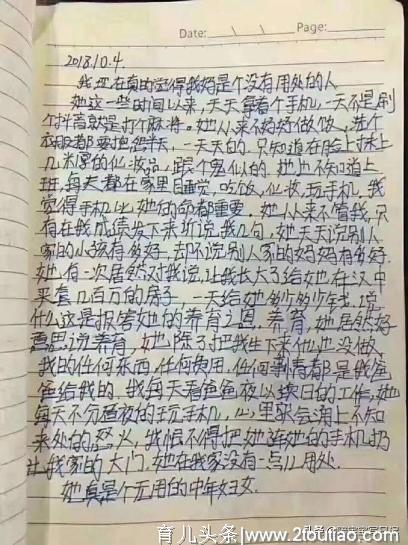 Date: Page:
2018.10.4.
我现在真的觉得我妈是个没有用处的人
她这一些时间以来,天天拿着个手机,一天不是刷
个抖音就是打个麻将。她从来不好好做饭,洗个
衣服都要抱怨半天,一天天的,只知道在脸上抹上
几米厚的化妆品,跟个鬼似的。她也不知道上
班,每天都在家里睡觉,吃饭,化妆,玩手机,我
觉得手机比她的命都重要。她从来不管我,只
有在我成绩发下来说说我几句,她天天说别人
家的小孩有多好,却不说别人家的妈妈有多好
她有一次居然对我说,让我长大了给她在汉中
买套几百万的房子,一天给她多少多少钱,说
什么这是报答她的养育之恩,养育,她居然好
意思说养育,她也除了把我生下来什么也没做,
我的任何东西,任何费用,任何事情都是我爸
爸给我的,我每天看爸爸夜以继日的工作,她
每天不分昼夜的玩手机,心里就会涌上不知
来处的怒火,我恨不得把她连她的手机扔
出我家的大门。她在我家没有一点儿用处.
她真是个无用的中年妇女.
育儿头条/www.2toutiao.com